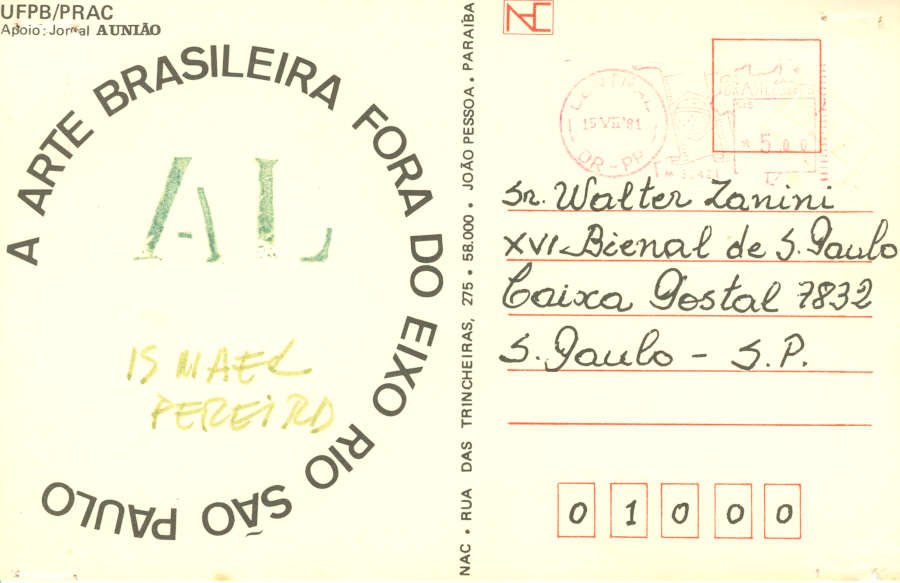 UFPB/PRAC
Apoio: Jornal A UNIÃO
A ARTE BRASILEIRA FORA DO EIXO RIO SÃO PAULO
AL
ISMAEL
PEREIRA
NAC • RUA DAS TRINCHEIRAS, 275 • 58.000 • JOÃO PESSOA • PARAÍBA
CENTRAL
15 VII '81
DR-PB
500
Sr. Walter Zanini
XVI-Bienal de S. Paulo
Caixa Postal 7832
S. Paulo - S.P.
0 1 0 0 0